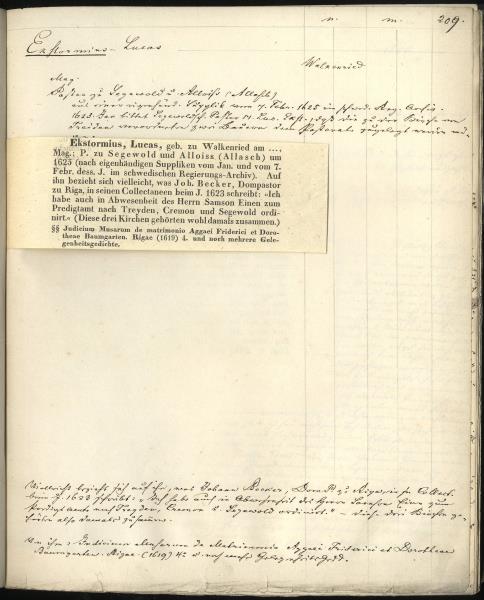 n. m. 209.
Ekstormius, Lucas
Walkenried
Mag.
Pastor zu Segewold u. Alloiss (Allasch)
Ekstormius, Lucas, geb. zu Walkenried am ...,
Mag.; P. zu Segewold und Alloiss (Allasch) um
1625 (nach eigenhändigen Suppliken vom Jan. und vom 7.
Febr. dess. J. im schwedischen Regierungs-Archiv). Auf
ihn bezieht sich vielleicht, was Joh. Becker, Dompastor
zu Riga, in seinen Collectaneen beim J. 1623 schreibt: »Ich
habe auch in Abwesenheit des Herrn Samson Einen zum
Predigtamt nach Treyden, Cremon und Segewold ordi-
nirt.« (Diese drei Kirchen gehörten wohl damals zusammen.)
§§ Judicium Musarum de matrimonio Aggaei Friderici et Doro-
theae Baumgarten. Rigae (1619) 4. und noch mehrere Gele-
genheitsgedichte.
Vielleicht bezieht sich auf ihn, was Johann Becker, Dompast. zu Riga, in s. Collect.
beim J. 1623 schreibt: "Ich habe auch in Abwesenheit des Herrn Samson Einen zum
Predigtamt nach Treyden, Cremon u. Segewold ordinirt." – diese drei Kirchen ge-
hörten also damals zusammen.
Von ihm: Judicium Musarum de Matrimonio Aggaei Friderici et Dorotheae
Baumgarten. Rigae (1619) 4. u. noch mehr Gelegenheitsged.